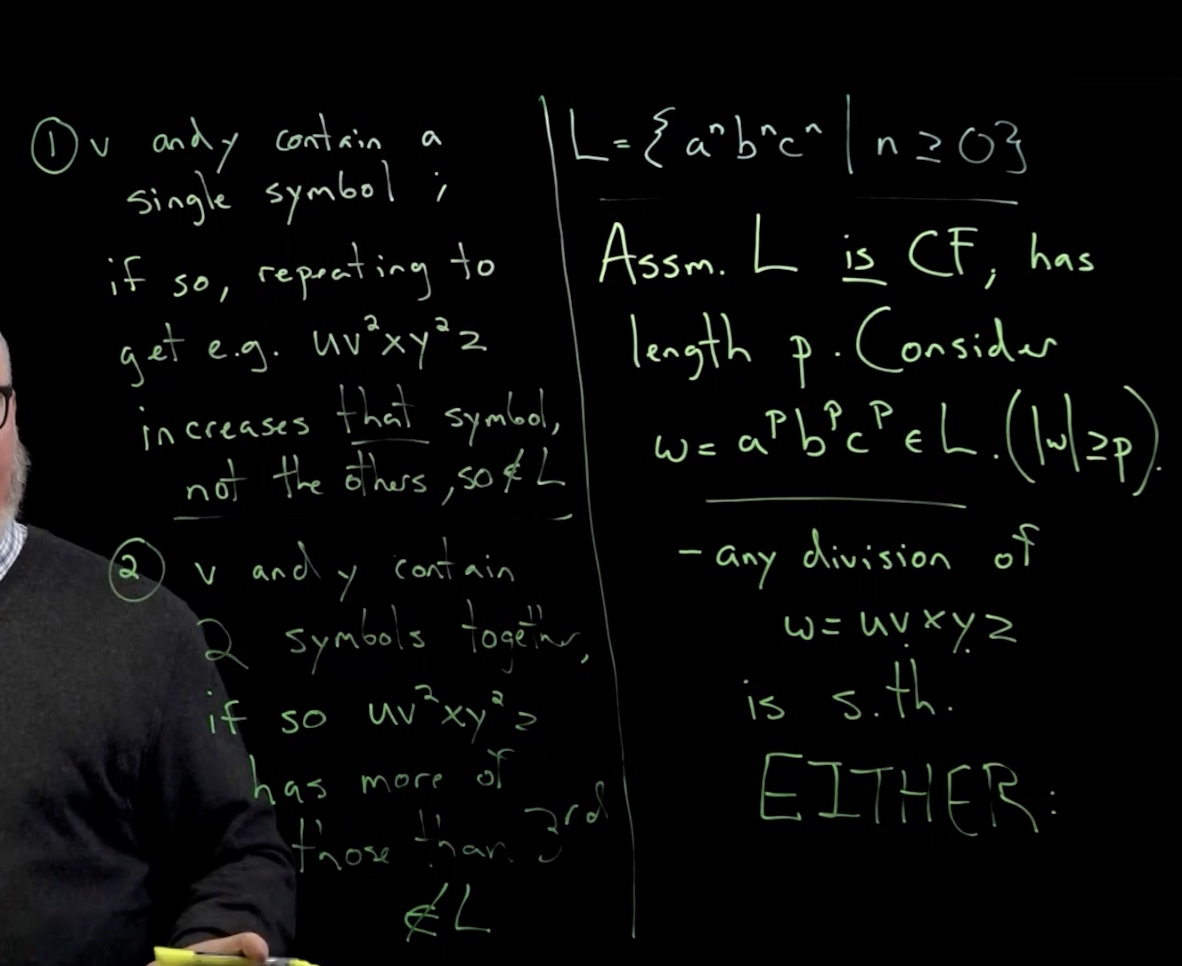 ① v and y contain a
single symbol ;
if so, repeating to
get e.g. uv²xy²z
increases that symbol,
not the others, so ∉ L
② v and y contain
2 symbols together,
if so uv²xy²z
has more of
those than 3rd
∉ L
L = {aⁿbⁿcⁿ | n ≥ 0}
Assm. L is CF, has
length p. Consider
w = aᵖbᵖcᵖ ∈ L. (|w| ≥ p).
- any division of
w = uvxyz
is s.th.
EITHER: